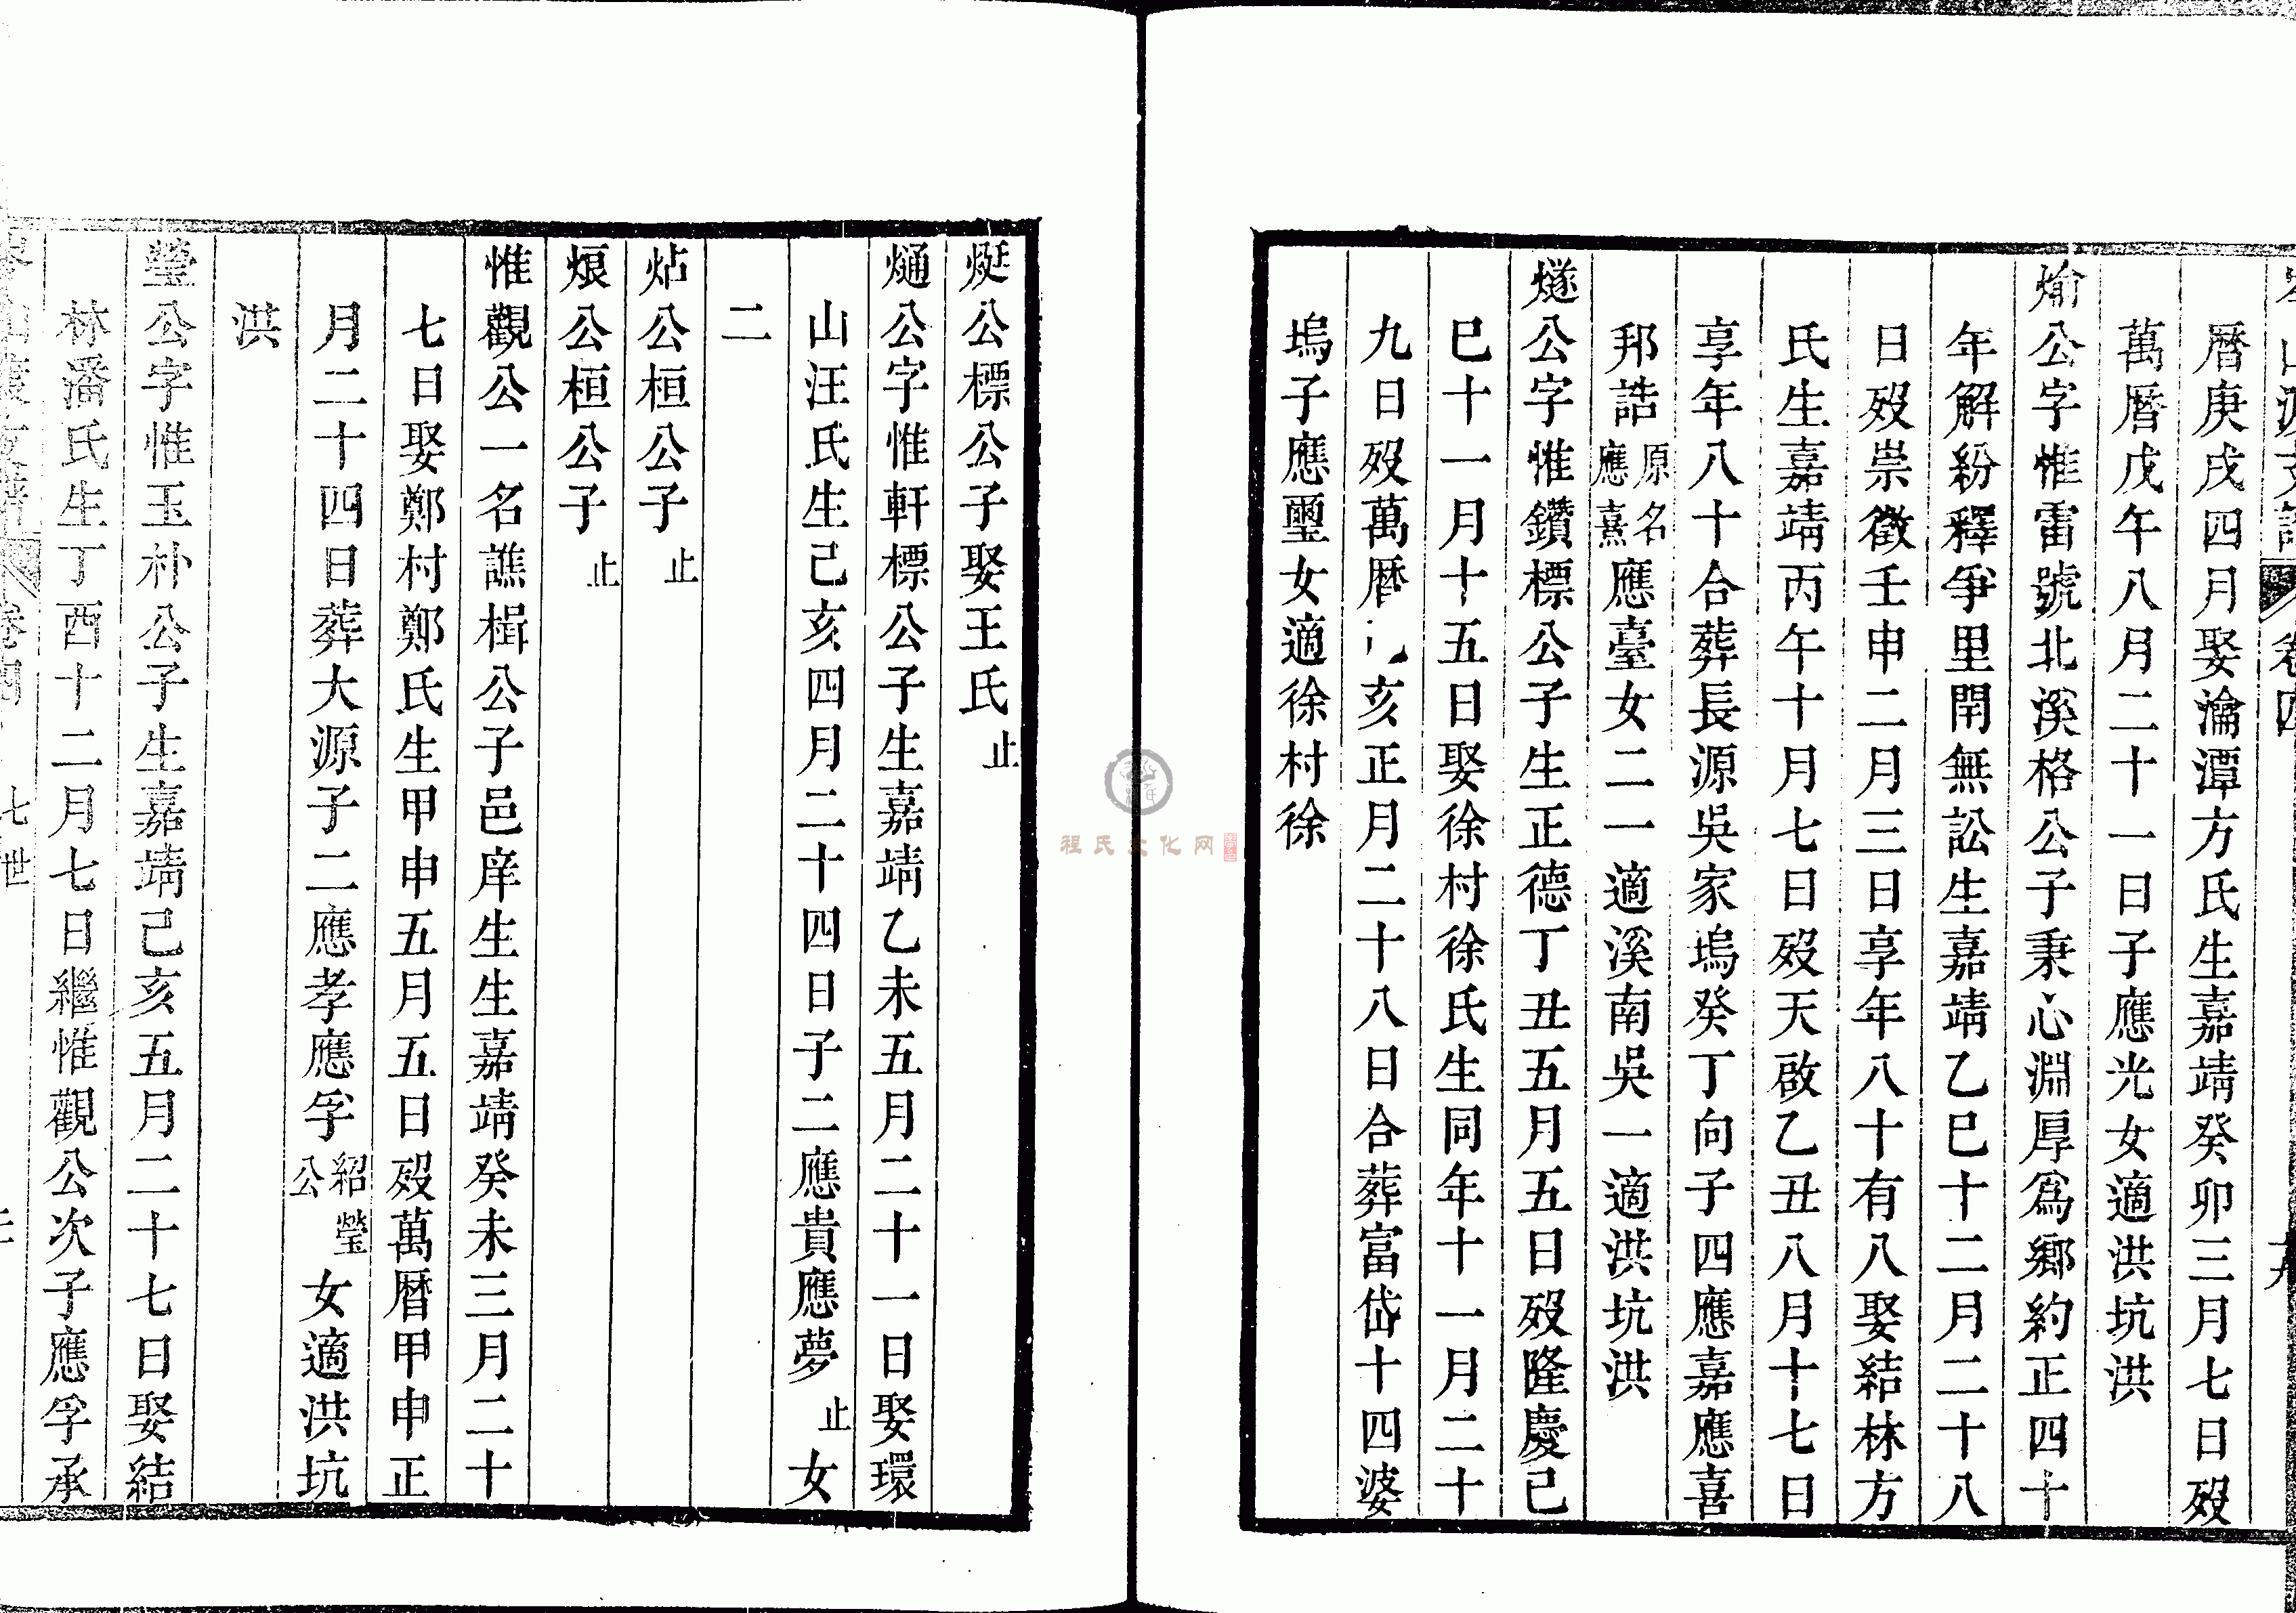 曆庚戌四月娶瀹潭方氏生嘉靖癸卯三月七日歿
萬曆戊午八月二十一日子應光女適洪坑洪
煰公字惟雷號北溪格公子秉心淵厚爲鄉約正四十
年解紛釋爭里閈無訟生嘉靖乙巳十二月二十八
日歿崇徵壬申二月三日享年八十有八娶結林方
氏生嘉靖丙午十月七日歿天啟乙丑八月十七日
享年八十合葬長源吳家塢癸丁向子四應嘉應喜
邦誥原名應熹應臺女二一適溪南吳一適洪坑洪
燧公字惟鑽標公子生正德丁丑五月五日歿隆慶己
巳十一月十五日娶徐村徐氏生同年十一月二十
九日歿萬曆亥正月二十八日合葬富岱十四婆
塢子應璽女適徐村徐
烶公標公子娶王氏止
熥公字惟軒標公子生嘉靖乙未五月二十一日娶環
山汪氏生己亥四月二十四日子二應貴應夢止女
二
炶公桓公子止
烺公桓公子止
惟觀公一名譙楫公子邑庠生生嘉靖癸未三月二十
七日娶鄭村鄭氏生甲申五月五日歿萬曆甲申正
月二十四日葬大源子二應孝應孚紹瑩公女適洪坑
洪
瑩公字惟玉朴公子生嘉靖己亥五月二十七日娶結
林潘氏生丁酉十二月七日繼惟觀公次子應孚承
卷四
七世
程氏文化网